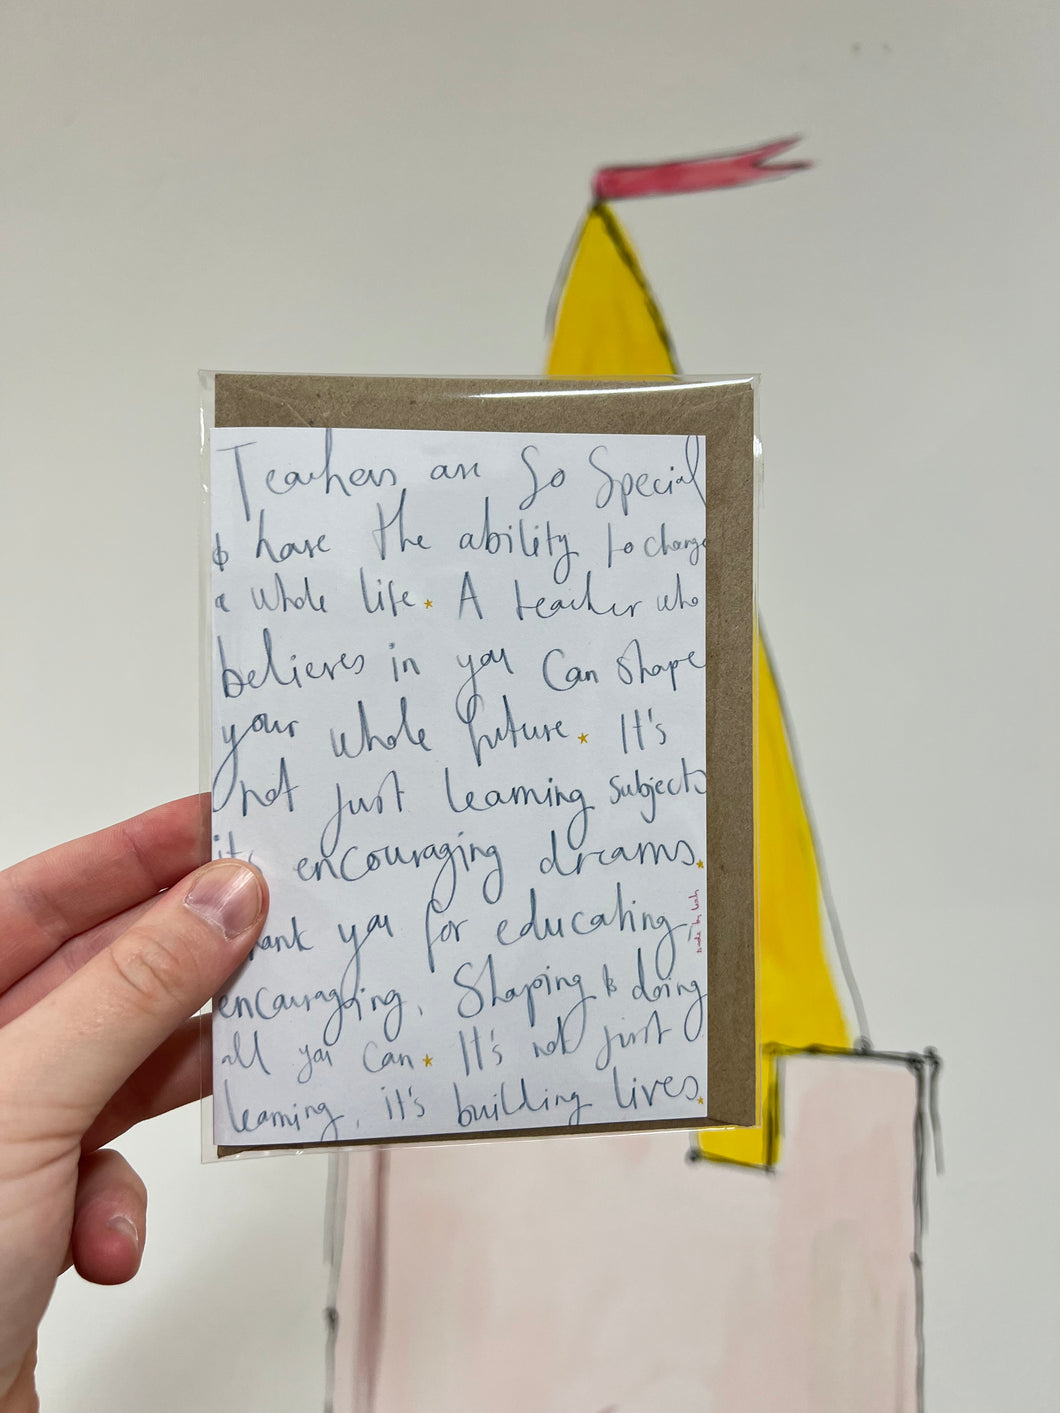 Teachers are So Special
& have the ability to change
a whole life. A teacher who
believes in you can shape
your whole future. It's
not just learning subjects
its encouraging dreams.
ank you for educating,
encouraging, Shaping & doing
all you can. It's not just
learning, it's building lives.
made by leah